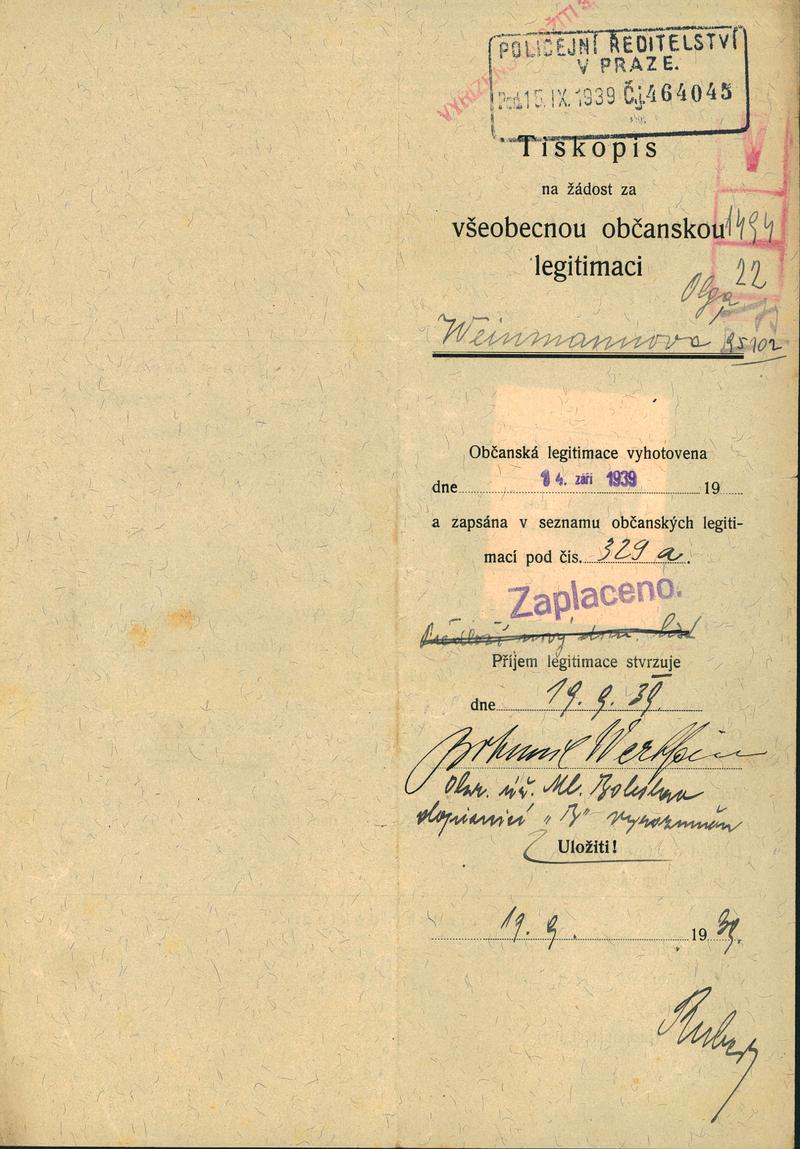 POLICEJNÍ ŘEDITELSTVÍ
V PRAZE.
15. IX. 1939 Čj. 464045
Tiskopis
na žádost za
všeobecnou občanskou 1494
legitimaci 22
Olga
Weinmannova 25102
Občanská legitimace vyhotovena
dne 14. září 1939 19
a zapsána v seznamu občanských legiti-
mací pod čís. 329 a.
Zaplaceno.
Příjem legitimace stvrzuje
dne 19. 9. 39.
Bohumil
Okr. úř. Ml. Boleslav
"B" vyrozuměn
Uložiti!
19. 9. 19 39.